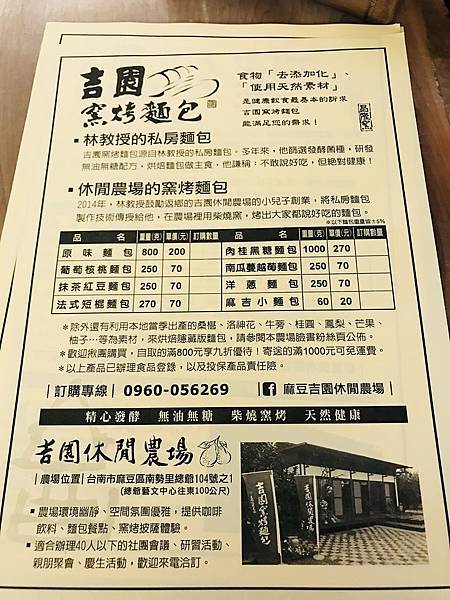 吉園
窯烤麵包
食物「去添加化」、
「使用天然素材」
是健康飲食最基本的訴求
吉園窯烤麵包
能滿足您的需求！
▪林教授的私房麵包
吉園窯烤麵包源自林教授的私房麵包。多年來，他篩選發酵菌種，研發
無油無糖配方，烘焙麵包做主食，他謙稱：不敢說好吃，但絕對健康！
▪休閒農場的窯烤麵包
2014年，林教授鼓勵返鄉的吉園休閒農場的小兒子創業，將私房麵包
製作技術傳授給他，在農場裡用柴燒窯，烤出大家都說好吃的麵包。
＊以下麵包重量皆±5%
品 名 重量(克) 單價(元) 訂購數量 品 名 重量(克) 單價(元) 訂購數量
原味麵包 800 200 肉桂黑糖麵包 1000 270
葡萄核桃麵包 250 70 南瓜蔓越莓麵包 250 70
抹茶紅豆麵包 250 70 洋蔥麵包 250 70
法式短棍麵包 270 70 麻吉小麵包 60 20
＊除外還有利用本地當季出產的桑椹、洛神花、牛蒡、桂圓、鳳梨、芒果、
柚子…等為素材，來烘培隱藏版麵包，請參閱本農場臉書粉絲頁公佈。
＊歡迎揪團購買，自取的滿800元享九折優待！寄送的滿1000元可免運費。
＊以上產品已辦理食品登錄，以及投保產品責任險。
|訂購專線| 0960-056269 f 麻豆吉園休閒農場|
精心發酵 無油無糖 柴燒窯烤 天然健康
吉園休閒農場
|農場位置|台南市麻豆區南勢里總爺104號之1
(總爺藝文中心往東100公尺)
▪農場環境幽靜、空間氛圍優雅，提供咖啡
飲料、麵包餐點、窯烤披薩體驗。
▪適合辦理40人以下的社團會議、研習活動、
親朋聚會、慶生活動，歡迎來電洽訂。
吉園窯烤麵包
吉園休閒農場